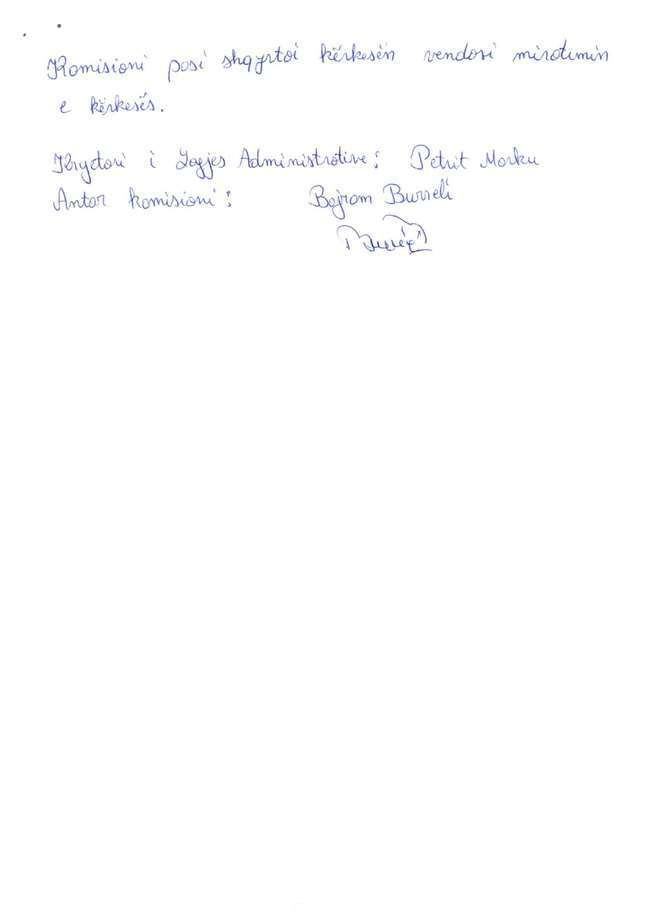 Komisioni pasi shqyrtoi kërkesën vendosi miratimin
e kërkesës.
Kryetari i Zogjes Administrative: Petrit Marku
Antar komisioni: Bajram Burreli